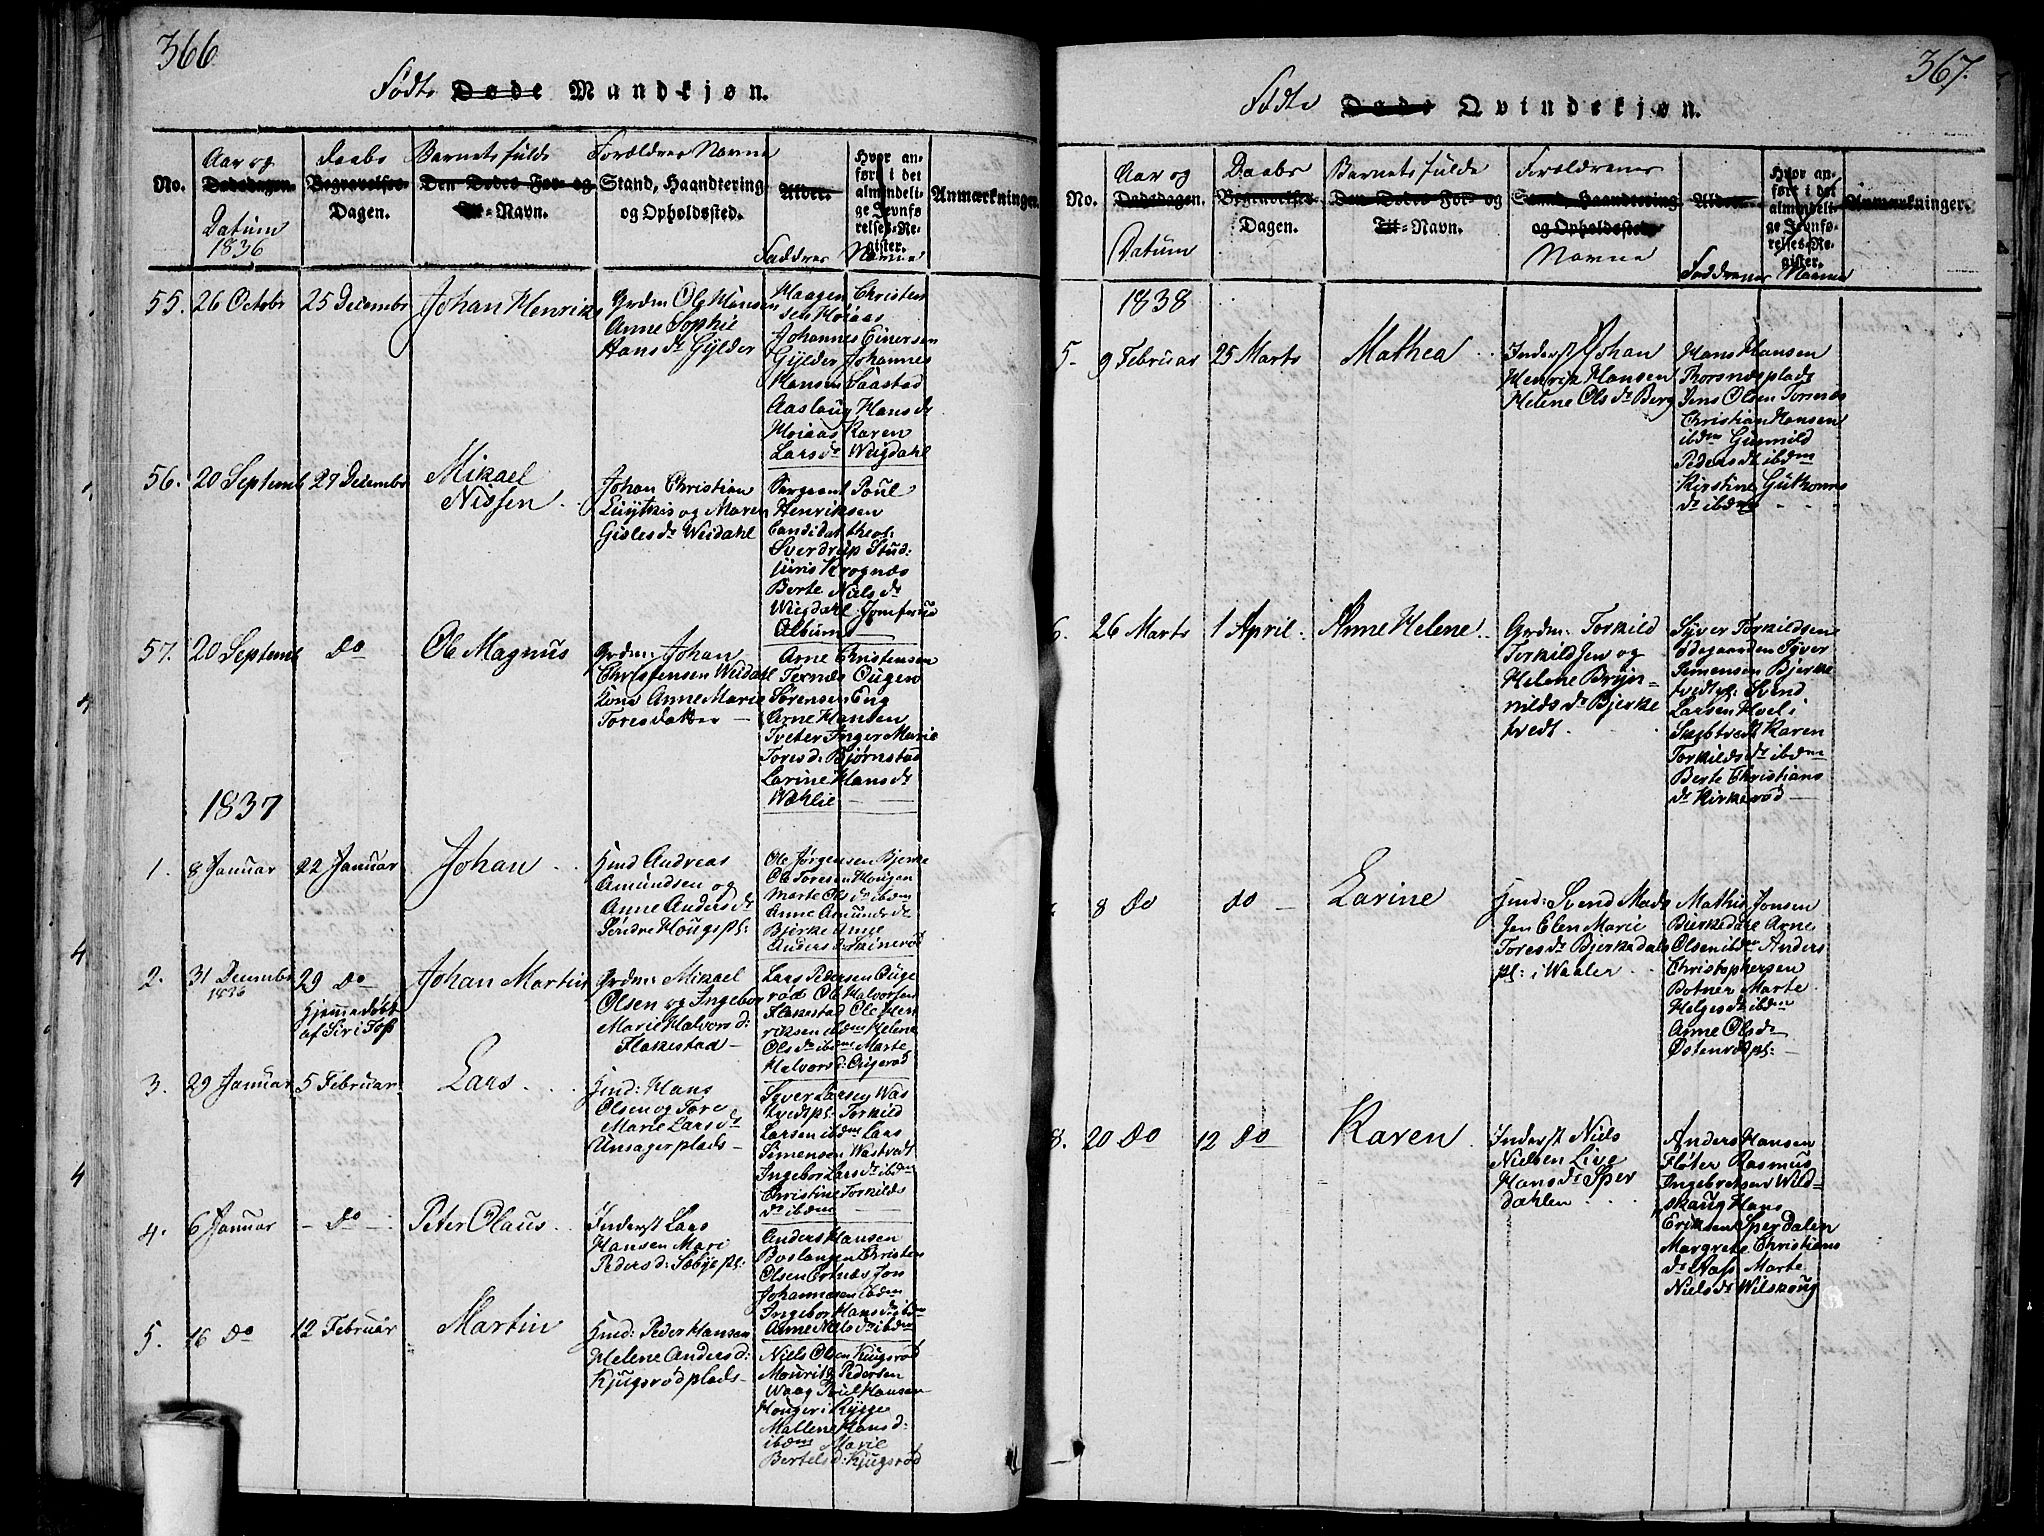 366
Fødte Døde Mandkjøn.
No.
Aar og
Dødsdagen.
Datum
1836
Daabs
Begravelses-
Dagen.
Barnets fulde
Den Dødes For- og
Til-Navn.
Forældres Navne
Stand, Haandtering
og Opholdssted.
Alder.
Hvor an-
ført i det
almindeli-
ge Jevnfø
relses-Re-
gister.
Faddres Navne
Anmærkninger.
55. 26 Octobr 25 Decembr Johan Henrik
Grdm Ole Hansen
Anne Sophie
Hans dr Gylder
Haagen Christen
sen Moiaas
Johannes Einersen
Gylder Johannes
Hansen Saastad
Aaslaug Hans dr
Moiaas Karen
Lars dr Weigdahl
56. 20 Septemb 27 Decembr Mikael
Nissen
Johan Christian
og Maren
Gisles dr Weidahl
Sergeant Poul
Henriksen
Candidat theol:
Sverdrup Stud:
juris Krognæs
Berte Niels dr
Wiigdahl Jomfrue
Album
57. 20 Septemb do Ole Magnus
Grdm: Johan
Christensen Weidahl
Kone Anne Marie
Toresdatter
Arne Christensen
Texnæs Ougen
Sørensen Eng
Arne Hansen
Tveter Inger Marie
Tores d: Bjørnstad
Larine Hans dr
Wæhlie
1837
1. 8 Januar 22 Januar Johan
Hmd Andreas
Amundsen og
Anne Anders dr
Søndre Hougs pl:
Ole Jørgensen Bjerke
Ole Toresen Hougen
Marte Ols dr ibdm
Anne Amunds dr
Bjerke Anne
Anders d: Skinerød
2. 31 Decembr
1836
29 Do
Hjemmedøbt
af Siri Tos
Johan Martin
Grdm: Mikael
Olsen og Ingebor
Marie Halvors d:
Flakestad
Lars Pedersen Ouge
rød Ole Halvorsen
Flakestad Ole Hen
riksen ibdm Helene
Ols dr ibdm Marte
Halvors d: Ougerød
3. 29 Januar 5 Februar Lars
Hmd: Hans
Olsen og Tore
Marie Lars dr
Unsagerplads
Syver Larsen Was
tvedt pl: Torkild
Larsen ibdm Lars
Simensen Wastvedt
Ingebor Lars dr ibdm
Christine Torkilds
dr ibdm
4. 6 Januar Do Peter Olaus
Inderst Lars
Hansen Mari
Peders d: Sæbye pl:
Anders Hansen
Boslangen Christen
Olsen Ertnæs Jon
Johannesen ibdm
Ingebor Hans dr ibdm
Anne Niels dr ibdm
5. 16 Do 12 Februar Martin
Hmd: Peder Hansen
Helene Anders d:
Kjugsrød plads
Niels Olsen Kjugsrød
Mouritz Pedersen
Waag Poul Hansen
Houger i Rygge
Mallene Hans d:
ibdm Marie
Bertels d: Kjugsrød
367.
Fødte Døde Qvindekjøn.
No.
Aar og
Dødsdagen.
Datum
Daabs
Begravelses-
Dagen.
Barnets fulde
Den Dødes For- og
Til-Navn.
Forældrenes
Stand, Haandtering
og Opholdssted.
Navne
Alder.
Hvor an-
ført i det
almindeli-
ge Jevnfø-
relses-Re-
gister.
Faddrenes Navne
Anmærkninger.
1838
5. 9 Februar 25 Marts Mathea
Inderst Johan
Henrik Hansen
Helene Ols dr Berg
Hans Hansen
Thorsnæsplads
Jens Olsen Torsnæs
Christian Hansen
ibdm Gunnild
Peders dr ibdm
Kirstine Gutkorms
dr ibdm
6. 26 Marts 1 April Anne Helene
Grdm: Torkild
Torkildsen og
Helene Bryn-
nilds dr Bjerke
tvedt
Syver Torkildsen
Ødegaarden Syver
Simensen Bjerke
tvedt pl: Svend
Larsen Hvel i
Karen
Torkilds dr ibdm
Berte Christians
dr Kirkerød
8 Do do Larine
Hmd: Svend Mads
sen Elen Marie
Tores dr Bjerkedals
pl: i Waaler
Mathis Jonsen
Bjerkedal Arne
Olsen ibdm Anders
Christophersen
Botner Marte
Helges dr ibdm
Anne Ols dr
Østenrød pl:
8. 20 Do 12 Do Karen
Inderst Niels
Nielsen Live
Hans dr Sper
dahlen
Anders Hansen
Fløter Rasmus
Ingebretsen Wild-
skaug Hans
Eriksen Sperdalen
Margrete Christians
dr Næs Marte
Niels dr Wilskoug
4
4
4